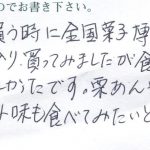 のでお書き下さい。
買う時に全国菓子博
り、買ってみましたが食
しかったです。栗あん
ト味も食べてみたいと